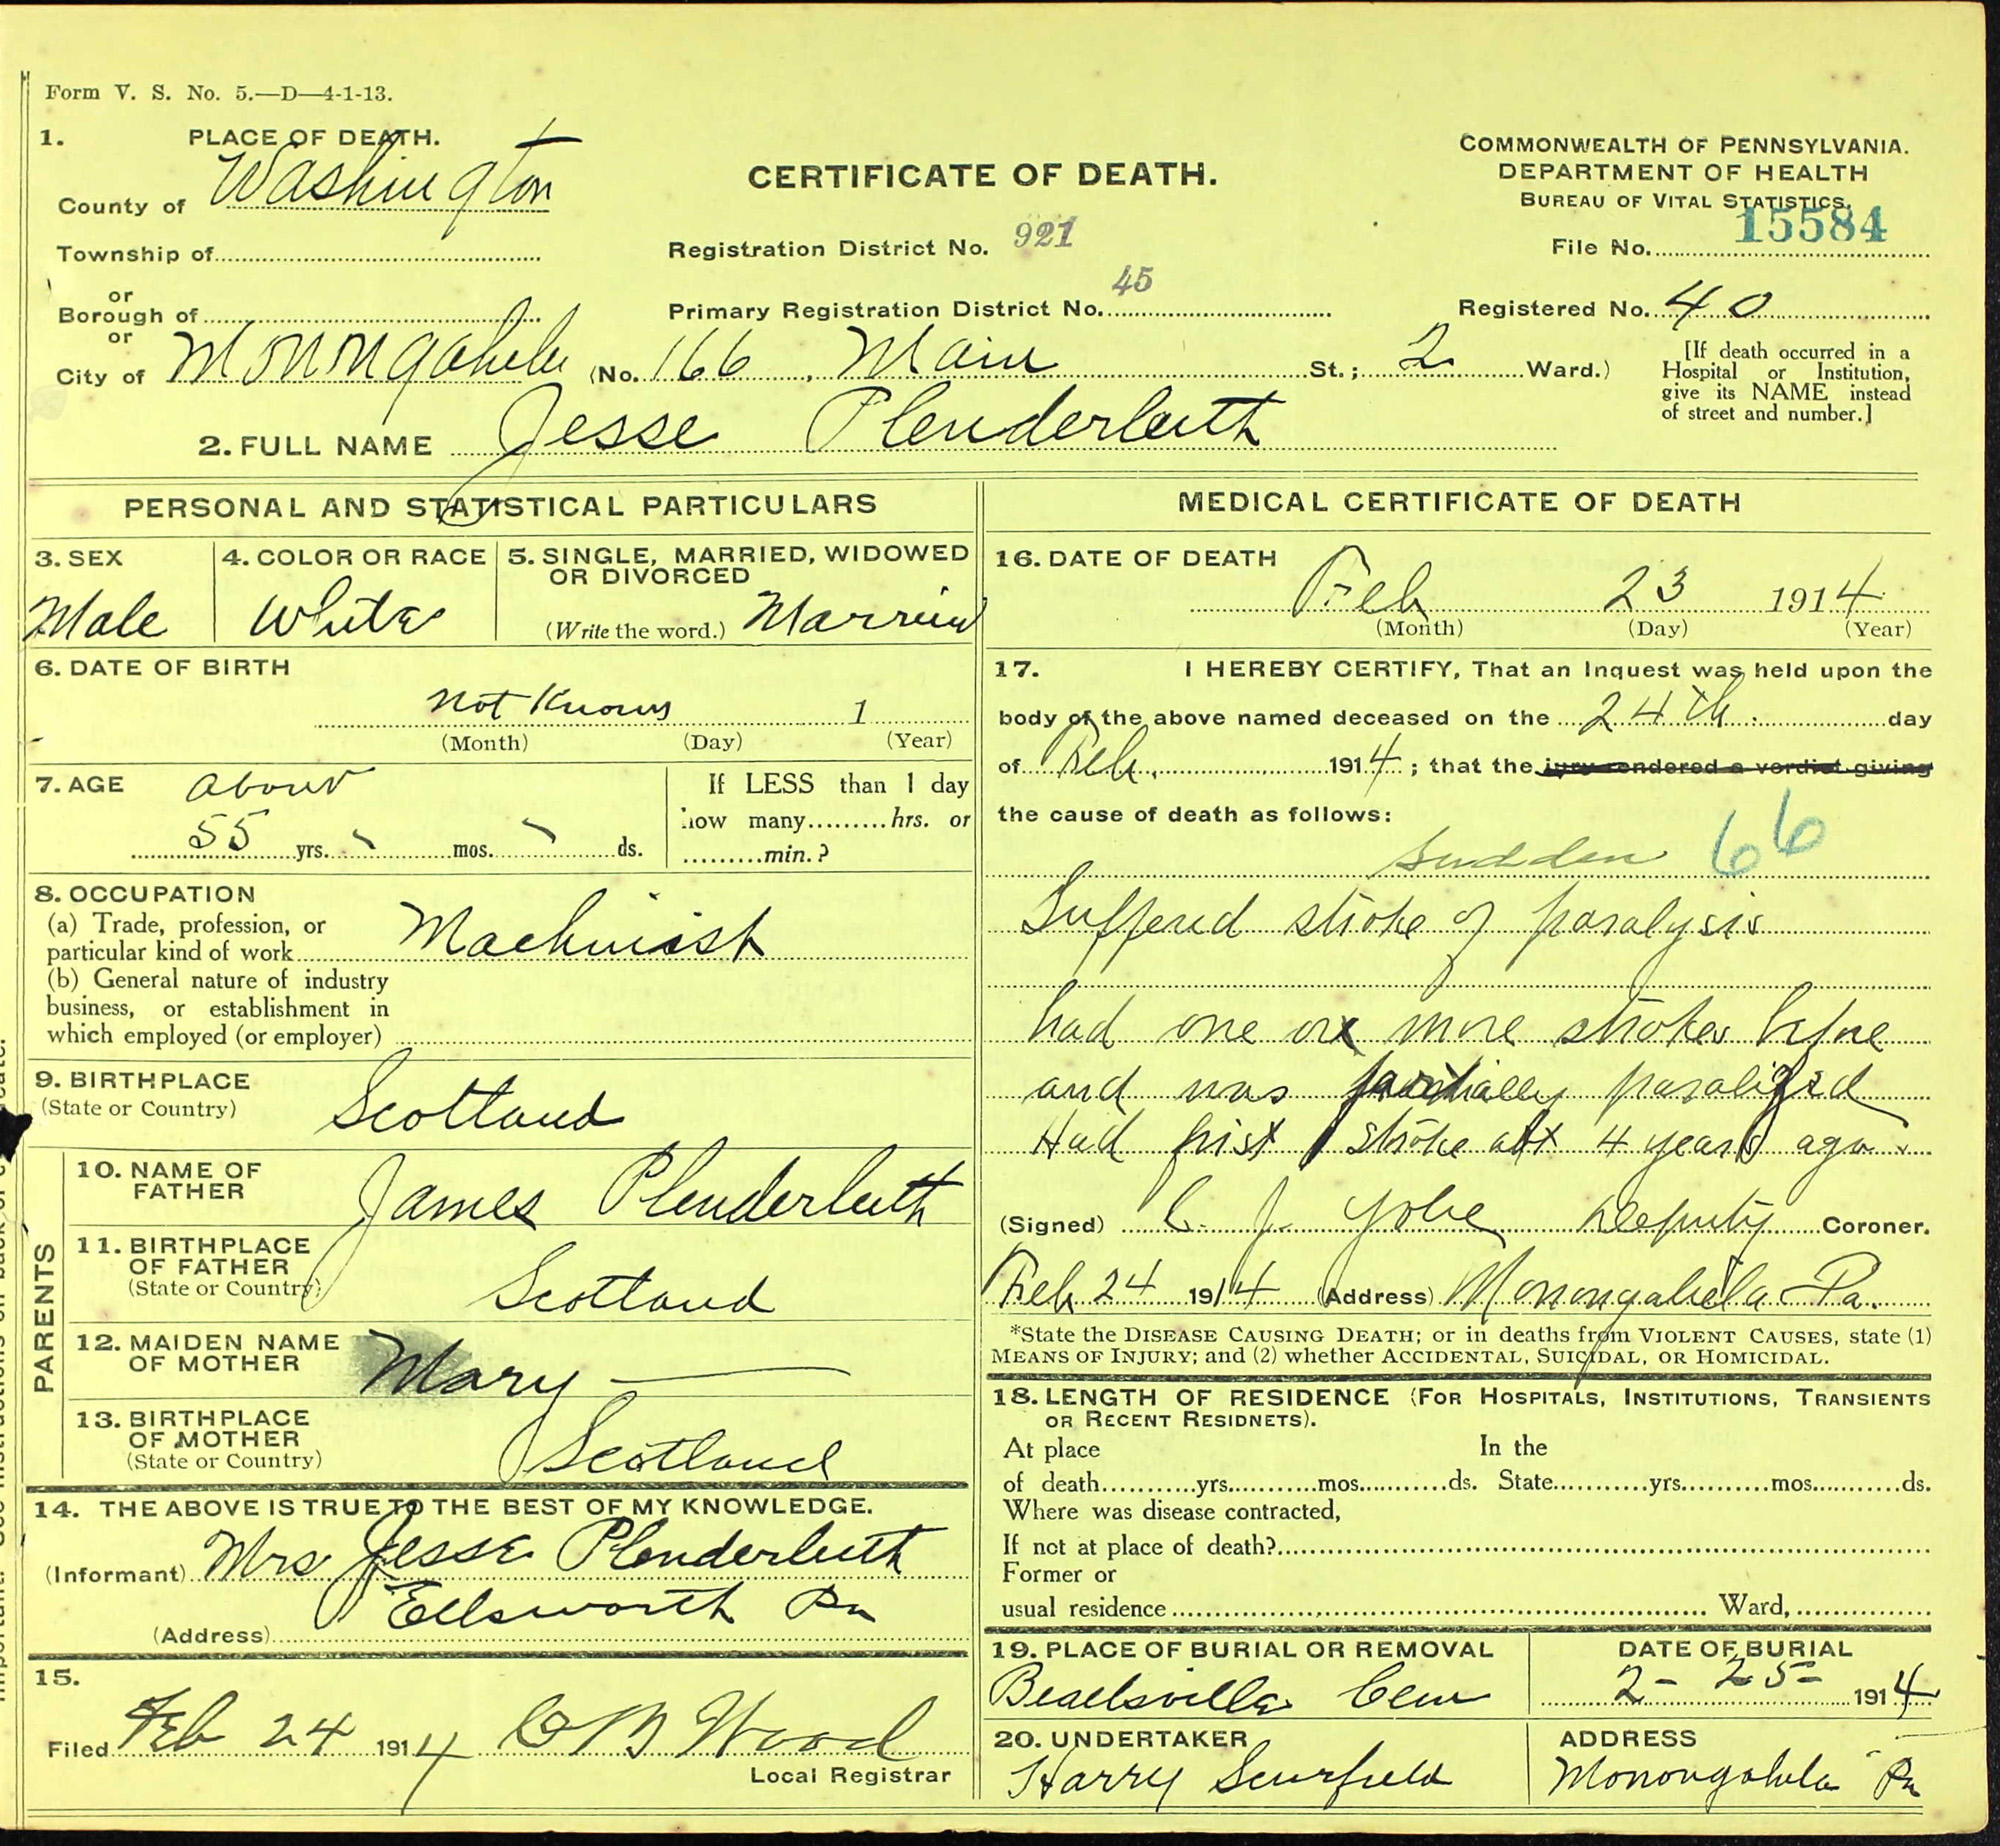 Form V. S. No. 5.—D—4-1-13.
1. PLACE OF DEATH.
County of Washington
Township of
or
Borough of
or
City of Monongahela (No. 166, Main St.; 2 Ward.)
CERTIFICATE OF DEATH.
Registration District No. 921
Primary Registration District No. 45
COMMONWEALTH OF PENNSYLVANIA.
DEPARTMENT OF HEALTH
BUREAU OF VITAL STATISTICS.
File No. 15584
Registered No. 40
[If death occurred in a
Hospital or Institution,
give its NAME instead
of street and number.]
2. FULL NAME Jesse Plenderleith
PERSONAL AND STATISTICAL PARTICULARS
3. SEX
Male
4. COLOR OR RACE
White
5. SINGLE, MARRIED, WIDOWED
OR DIVORCED
(Write the word.) Married
6. DATE OF BIRTH
not Known 1
(Month) (Day) (Year)
7. AGE about
55 yrs. mos. ds.
If LESS than 1 day
how many hrs. or
min.?
8. OCCUPATION
(a) Trade, profession, or
particular kind of work Machinist
(b) General nature of industry
business, or establishment in
which employed (or employer)
9. BIRTHPLACE
(State or Country) Scotland
PARENTS
10. NAME OF
FATHER James Plenderleith
11. BIRTHPLACE
OF FATHER
(State or Country) Scotland
12. MAIDEN NAME
OF MOTHER Mary —
13. BIRTHPLACE
OF MOTHER
(State or Country) Scotland
14. THE ABOVE IS TRUE TO THE BEST OF MY KNOWLEDGE.
(Informant) Mrs Jesse Plenderleith
(Address) Ellsworth Pa
15.
Filed Feb 24 1914 C B Wood
Local Registrar
MEDICAL CERTIFICATE OF DEATH
16. DATE OF DEATH
Feb 23 1914
(Month) (Day) (Year)
17. I HEREBY CERTIFY, That an Inquest was held upon the
body of the above named deceased on the 24th. day
of Feb. 1914; that the jury rendered a verdict giving
the cause of death as follows:
sudden 66
Suffered stroke of paralysis
had one or more strokes before
and was partially paralized
Had first stroke abt 4 years ago.
(Signed) C. J. Yohe Deputy Coroner.
Feb 24 1914 (Address) Monongahela Pa.
*State the DISEASE CAUSING DEATH; or in deaths from VIOLENT CAUSES, state (1)
MEANS OF INJURY; and (2) whether ACCIDENTAL, SUICIDAL, OR HOMICIDAL.
18. LENGTH OF RESIDENCE (FOR HOSPITALS, INSTITUTIONS, TRANSIENTS
OR RECENT RESIDNETS).
At place In the
of death yrs. mos. ds. State yrs. mos. ds.
Where was disease contracted,
If not at place of death?
Former or
usual residence Ward,
19. PLACE OF BURIAL OR REMOVAL
Beallsville Cem
DATE OF BURIAL
2 - 25 - 1914
20. UNDERTAKER
Harry Scurfield
ADDRESS
Monongahela Pa